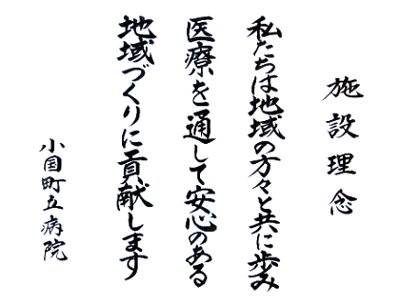 施設理念
私たちは地域の方々と共に歩み
医療を通して安心のある
地域づくりに貢献します
小国町立病院